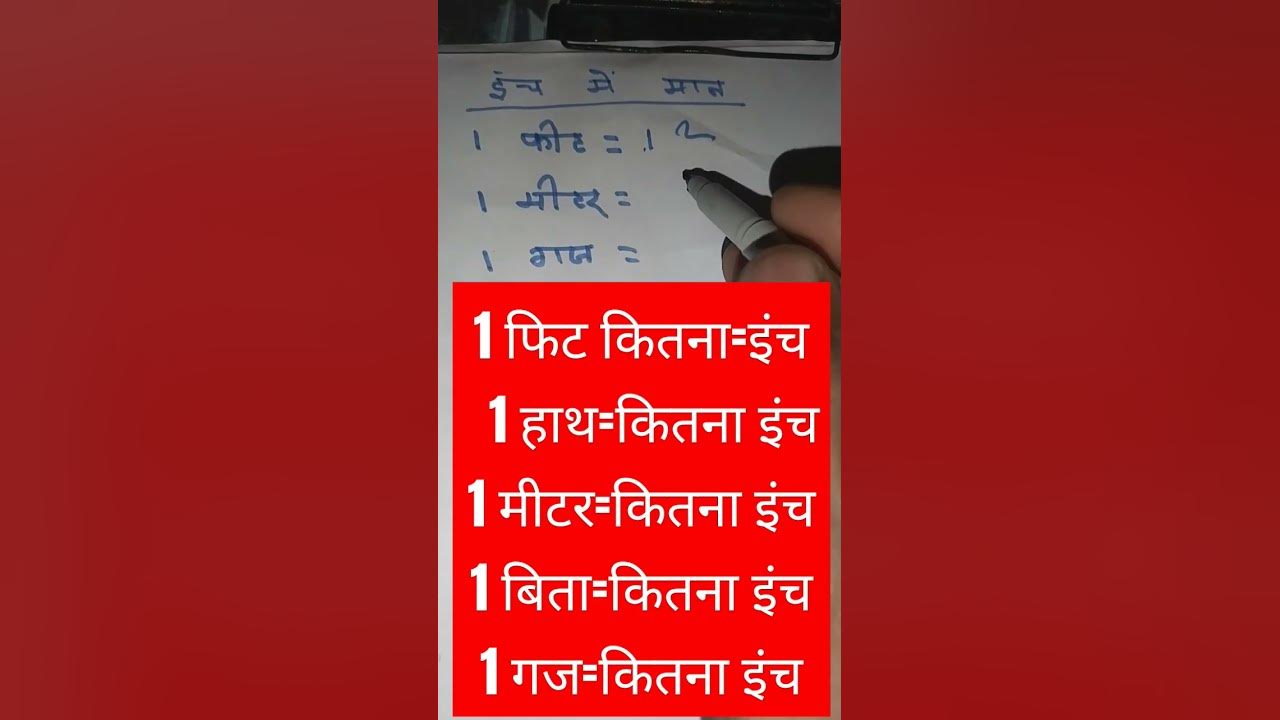 इंच में मान
1 फीट = 12
1 मीटर =
1 गज =
1 फिट कितना=इंच
1 हाथ=कितना इंच
1 मीटर=कितना इंच
1 बिता=कितना इंच
1 गज=कितना इंच